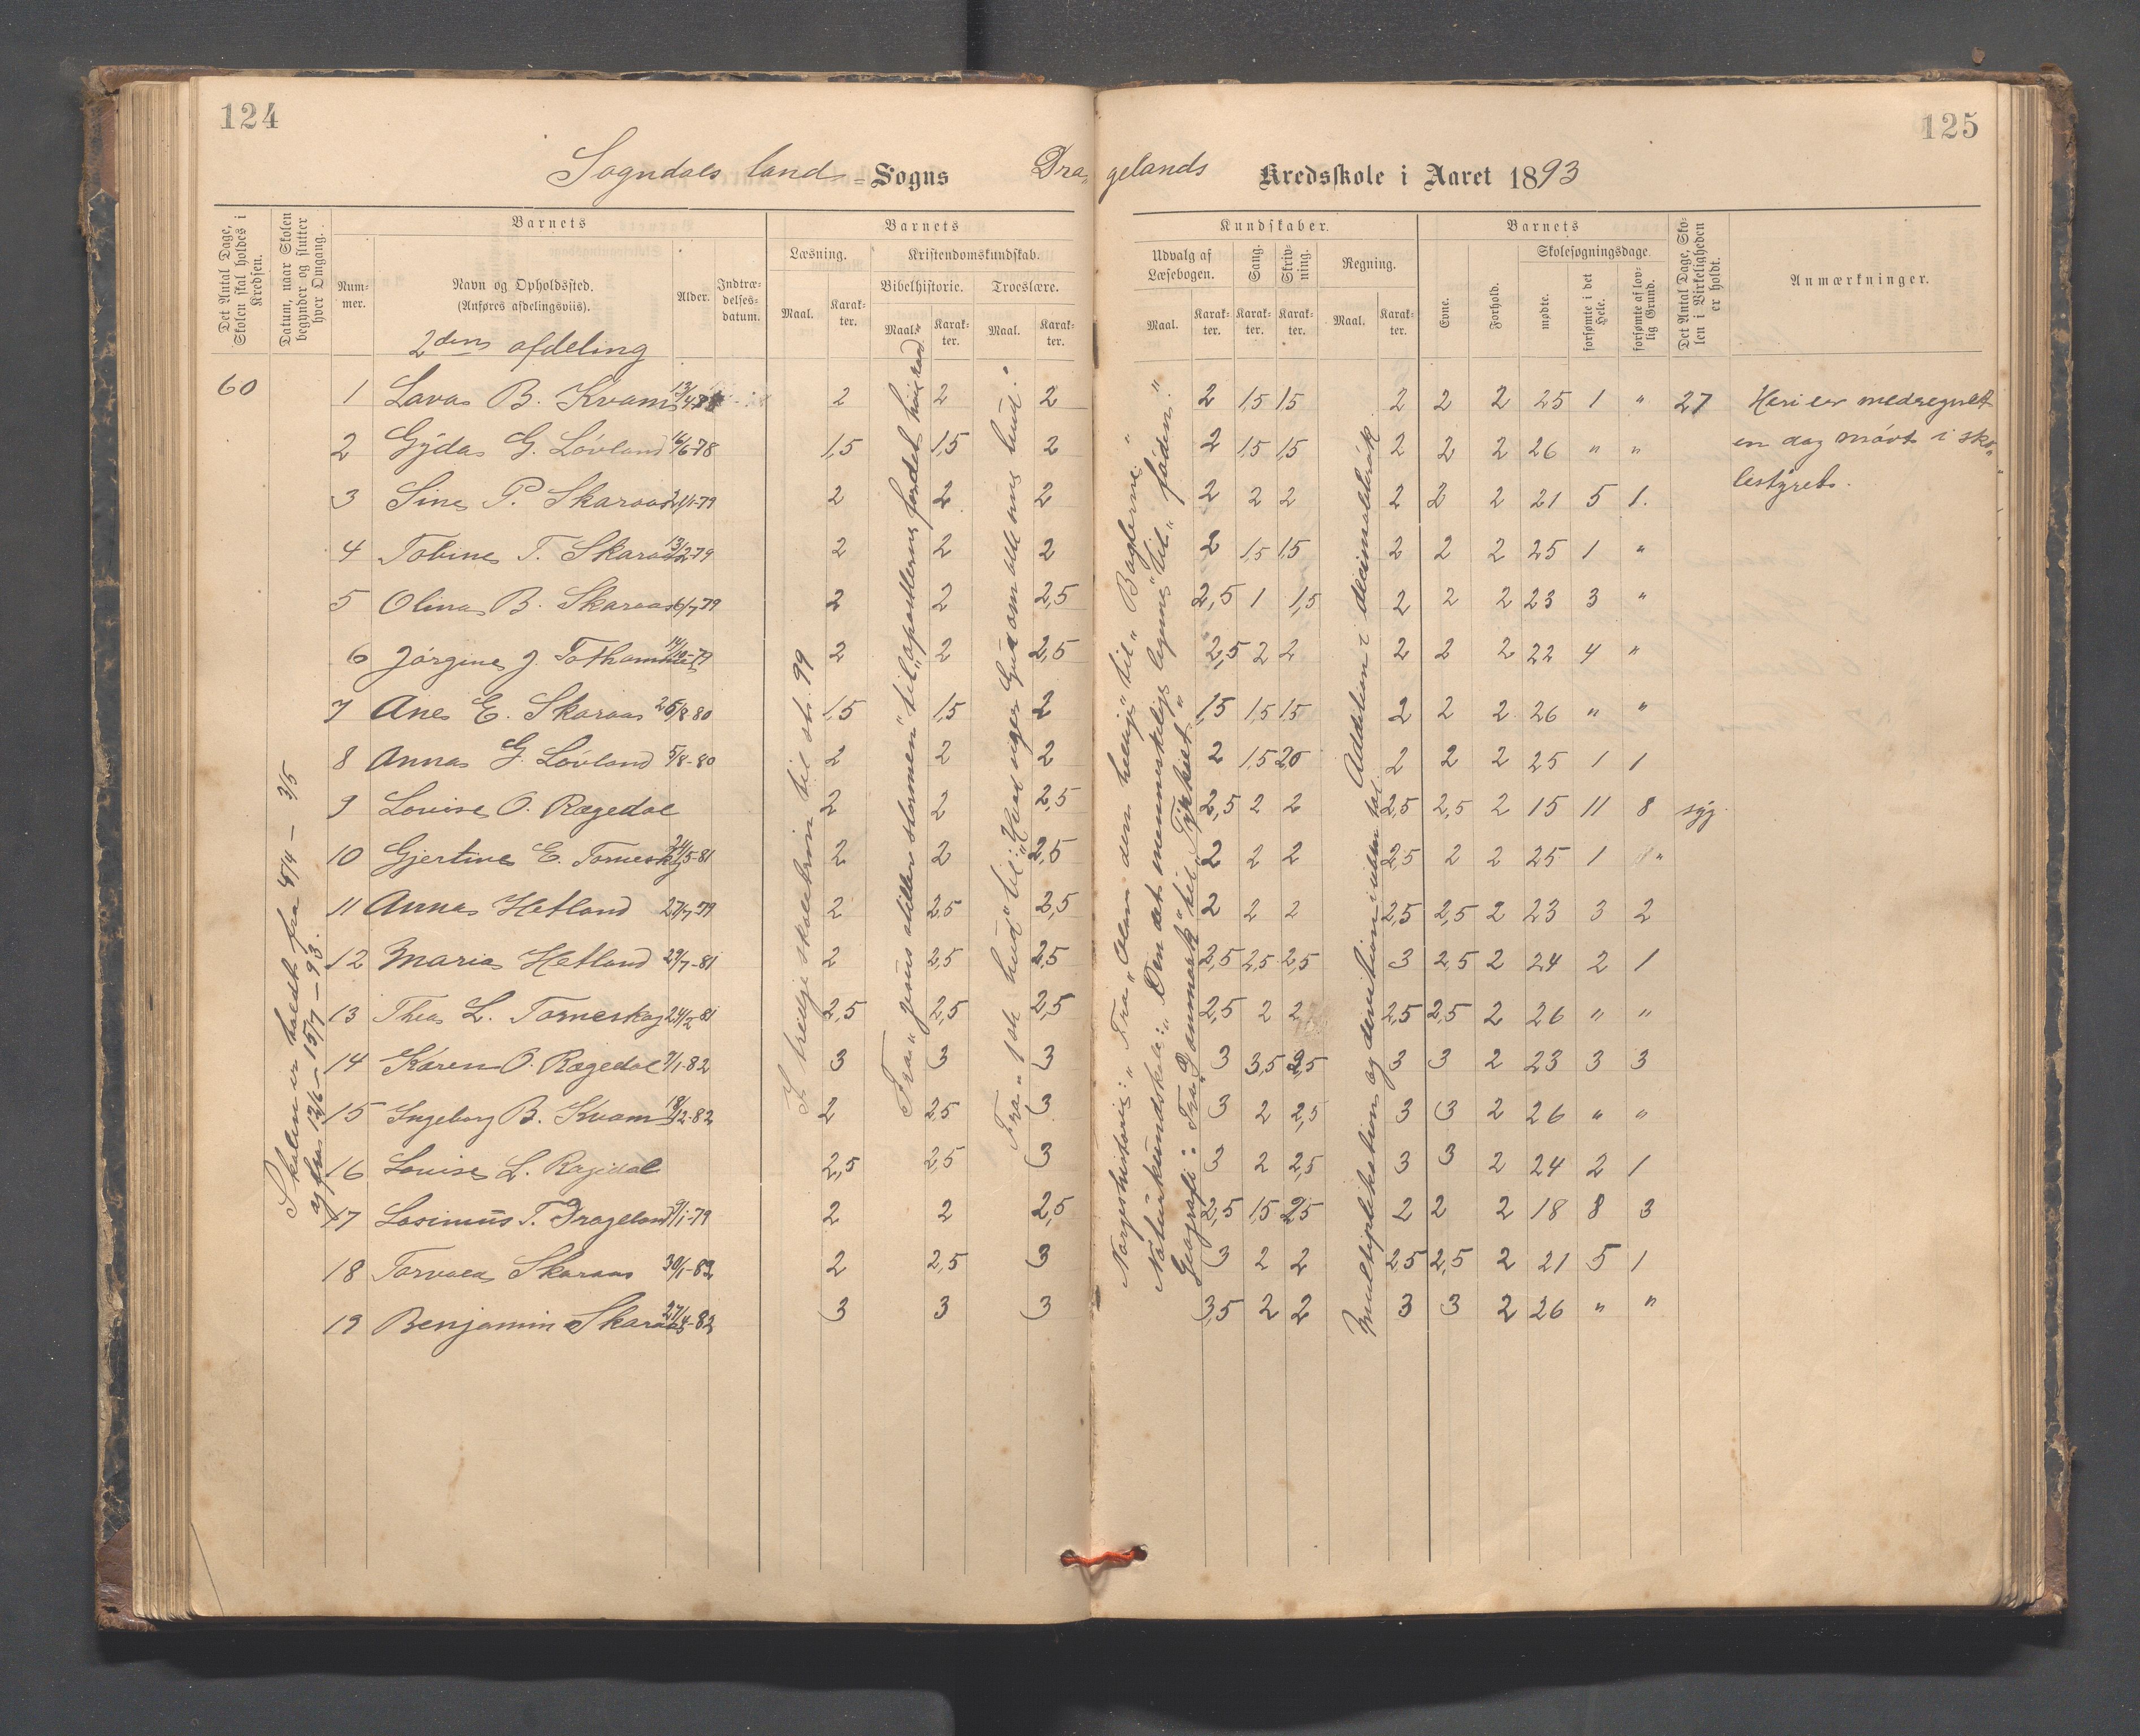 124
125
Sogndals land = Sogns
Dragelands Kredsskole i Aaret 1893
Det Antal Dage, Skolen skal holdes i Kredsen.
Datum, naar Skolen begynder og slutter hver Omgang.
Barnets
Nummer.
Navn og Opholdssted.
(Anføres afdelingsviis).
Alder.
Indtrædelsesdatum.
Barnets
Læsning.
Maal.
Karakter.
Kristendomskundskab.
Bibelhistorie.
Maal.
Karakter.
Troeslære.
Maal.
Karakter.
Kundskaber.
Udvalg af Læsebogen.
Maal.
Karakter.
Sang.
Karakter.
Skrivning.
Karakter.
Regning.
Maal.
Karakter.
Barnets
Evne.
Forhold.
Skolesøgningsdage.
mødte.
forsømte i det Hele.
forsømte af lovlig Grund.
Det Antal Dage, Skolen i Virkeligheden er holdt.
Anmærkninger.
2den afdeling
60
Skolen er holdt fra 4/4 – 3/5
og fra 12/6 – 15/7 – 93.
I tredje skoletrin til st. 99
Fra "Jesus stiller stormen" til "apostlerne
Troeslære
Norgeshistorie: Fra "Olav den hellige" til "Baglerne"
Naturkundskab: "Den det menneskelige legeme" til "føden."
Geografi: Fra "Danmark" til "Tyrkiet"
Addition i decimalbrøk
Multiplikation og division i
1 Lava B. Kvam 2 2 2 2 1,5 1,5 2 2 2 25 1 " 27 Heri er medregnet
2 Gyda G. Løvland 16/6-78 1,5 1,5 2 2 1,5 1,5 2 2 2 26 " " en dag møde i sko-
3 Sine P. Skaraas 2 2 2 2 2 2 2 2 2 21 5 1. lestyret.
4 Tobine T. Skaraas 13/2-79 2 2 2 2 1,5 1,5 2 2 2 25 1 "
5 Olina B. Skaraas 6/7-79 2 2 2,5 2,5 1 1,5 2 2 2 23 3 "
6 Jørgine J. 14/10-79 2 2 2,5 2,5 2 2 2 2 2 22 4 "
7 Ane E. Skaraas 26/8-80 1,5 1,5 2 1,5 1,5 1,5 2 2 2 26 " "
8 Anna G. Løvland 5/8-80 2 2 2 2 1,5 2,0 2 2 2 25 1 1
9 Lovise O. Rægedal 2 2 2,5 2,5 2 2 2,5 2,5 2 15 11 8 syg.
10 Gjertine E. Torneskog 24/5-81 2 2 2,5 2 2 2 2,5 2 2 25 1 "
11 Anna Hetland 27/7-79 2 2,5 3,5 2 2 2 2,5 2,5 2 23 3 2
12 Maria Hetland 29/7-81 2 2,5 2,5 2,5 2,5 2,5 3 2,5 2 24 2 1
13 Thea L. Torneskog 24/2-81 2,5 2,5 2,5 2,5 2 2 2,5 2,5 2 26 " "
14 Karen O. Rægedal 7/1-82 3 3 3 3 3,5 2,5 3 3 2 23 3 3
15 Ingeborg B. Kvam 18/12-82 2 2,5 3 3 2 2,5 3 3 2 26 " "
16 Lovise L. Rægedal 2,5 2,5 3 3 2 2,5 3 3 2 24 2 1
17 Lasimus T. Drageland 9/1-79 2 2 2,5 2,5 1,5 2,5 2 2 2 18 8 3
18 Torvald Skaraas 30/1-82 2 2,5 3 3 2 2 2,5 2,5 2 21 5 1
19 Benjamin Skaraas 27/4-82 3 3 3 3,5 2 2 3 3 2 26 " "